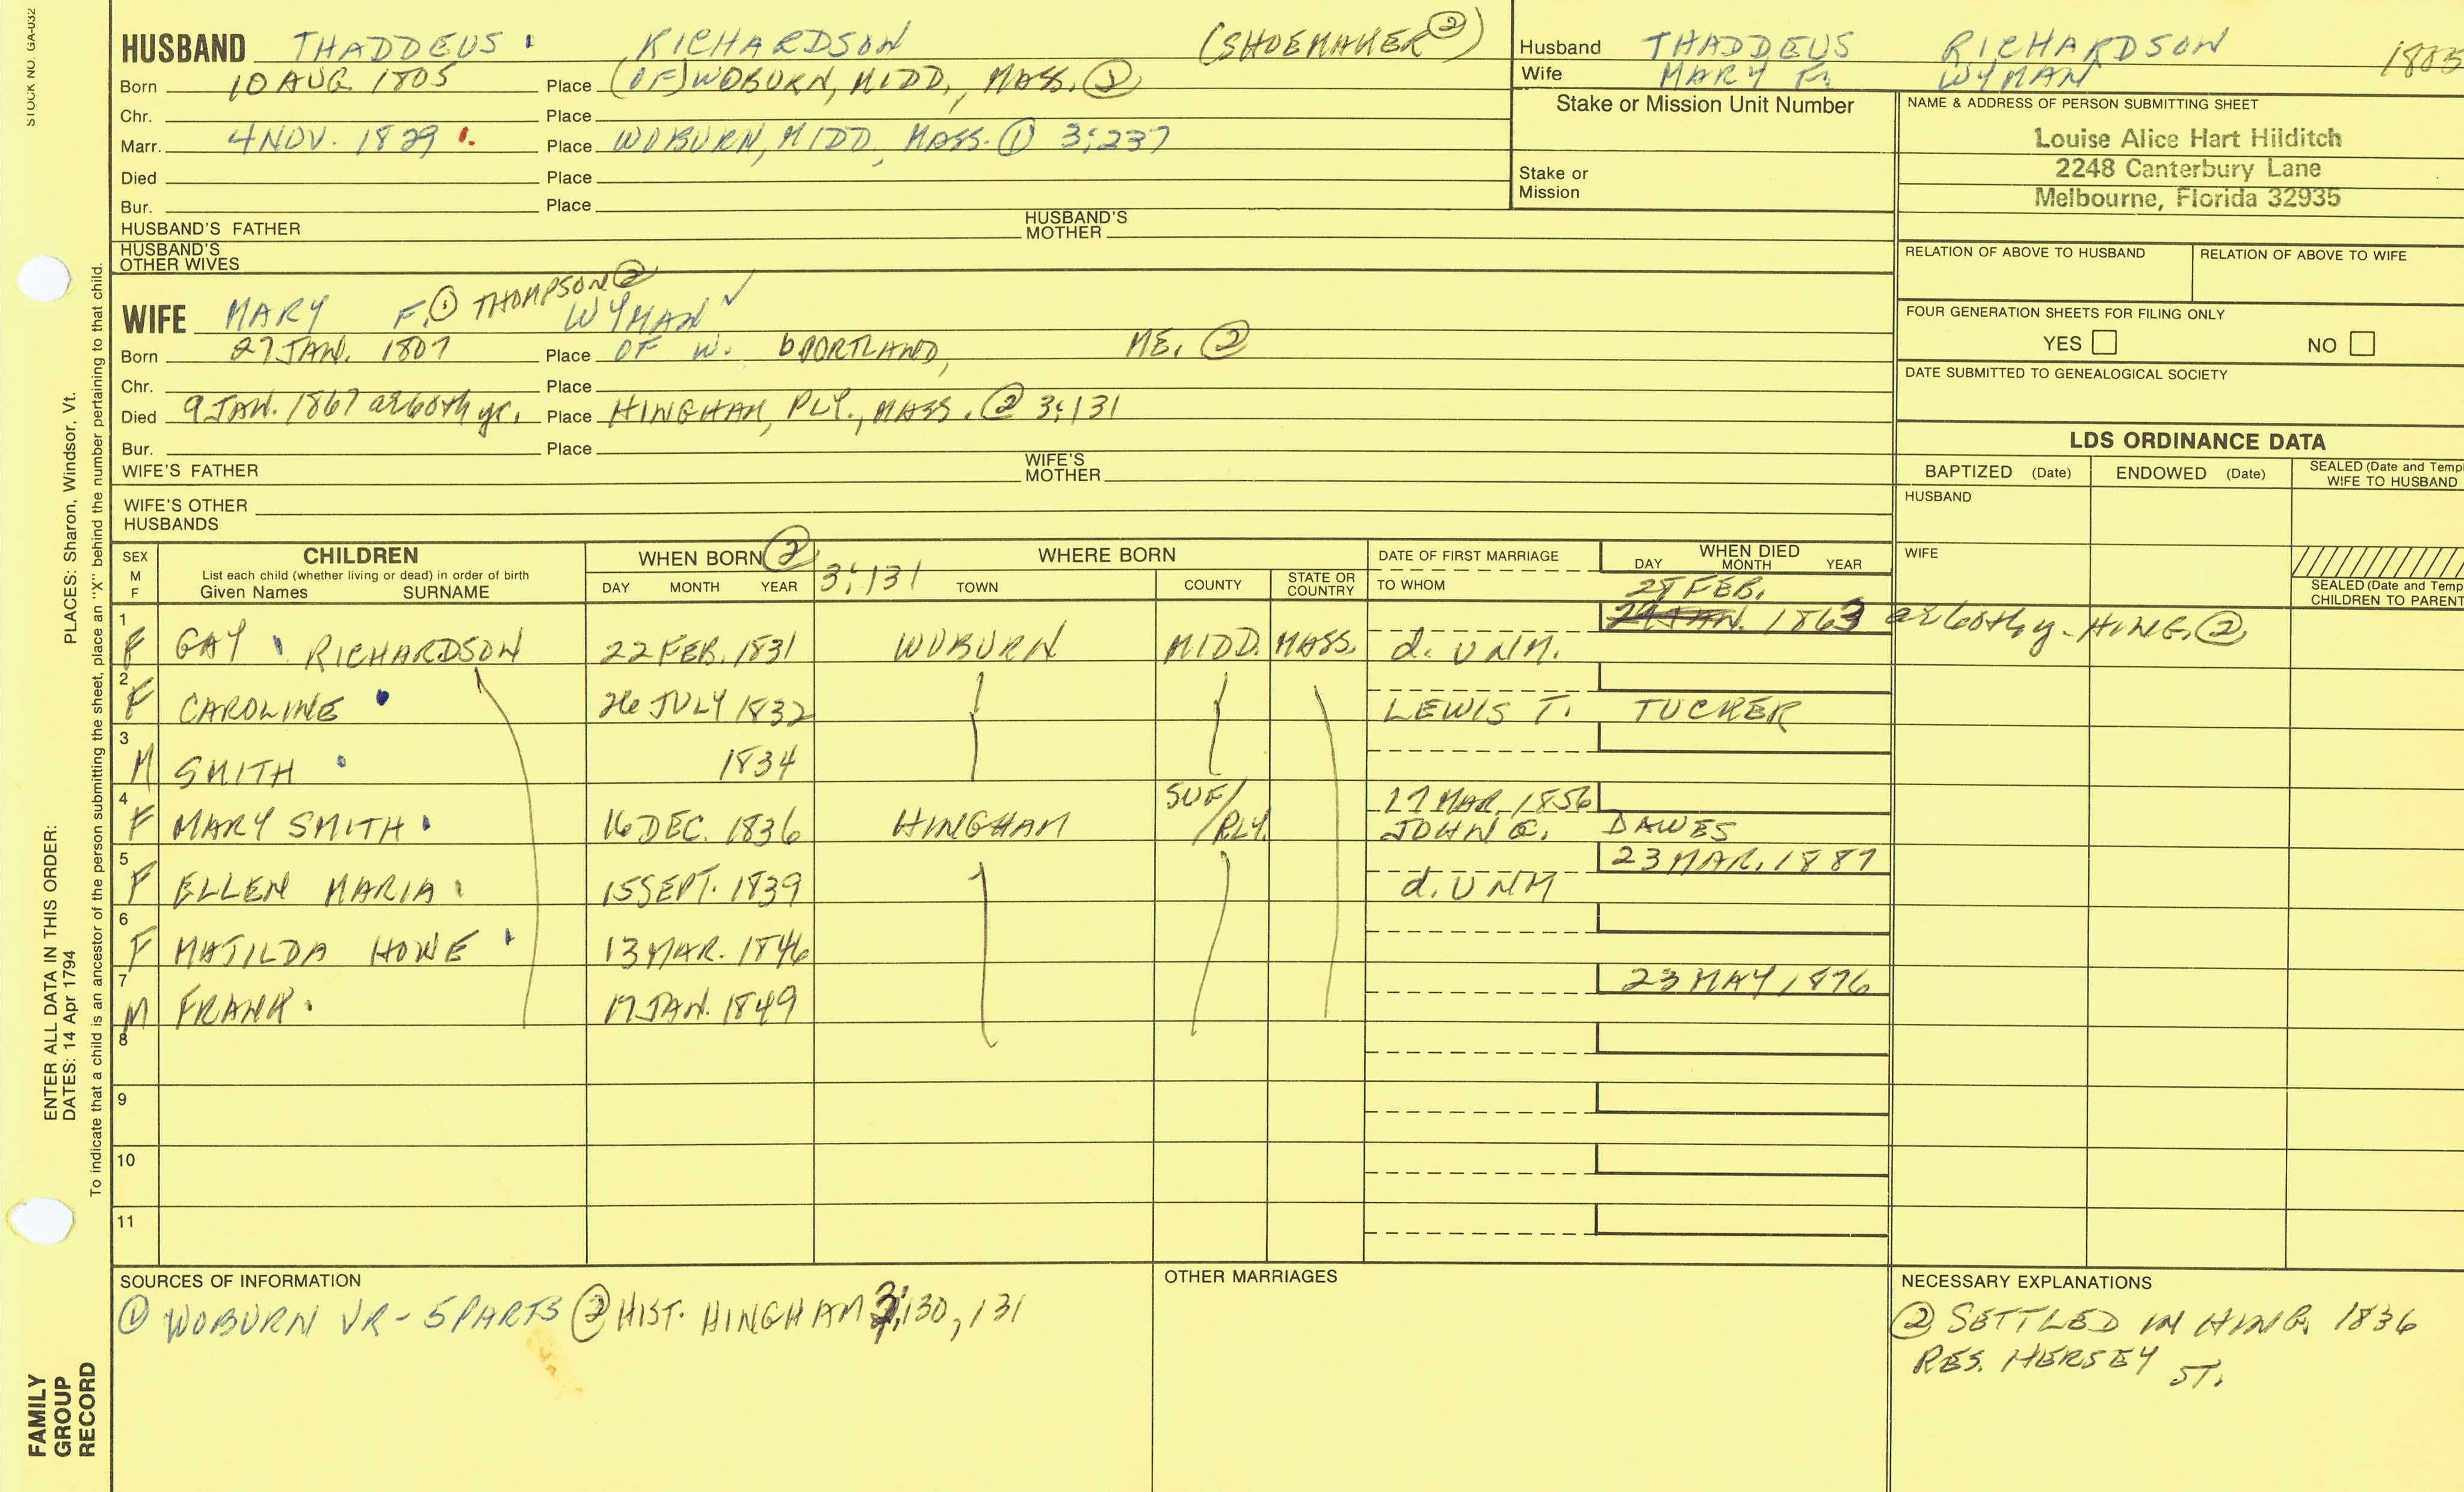 STOCK NO. GA-032
HUSBAND THADDEUS RICHARDSON (SHOEMAKER ②)
Born 10 AUG. 1805 Place (OF) WOBURN, MIDD., MASS. ①
Chr. Place
Marr. 4 NOV. 1829 Place WOBURN, MIDD, MASS. ① 3:237
Died Place
Bur. Place
HUSBAND'S FATHER HUSBAND'S MOTHER
HUSBAND'S OTHER WIVES
Husband THADDEUS RICHARDSON 1805
Wife MARY F. WYMAN
Stake or Mission Unit Number
Stake or Mission
NAME & ADDRESS OF PERSON SUBMITTING SHEET
Louise Alice Hart Hilditch
2248 Canterbury Lane
Melbourne, Florida 32935
RELATION OF ABOVE TO HUSBAND RELATION OF ABOVE TO WIFE
FOUR GENERATION SHEETS FOR FILING ONLY
YES NO
DATE SUBMITTED TO GENEALOGICAL SOCIETY
WIFE MARY F. ① THOMPSON ② WYMAN ✓
Born 27 JAN. 1807 Place OF W. PORTLAND, ME. ②
Chr. Place
Died 9 JAN. 1867 ae 60th yr. Place HINGHAM, PLY., MASS. ② 3:131
Bur. Place
WIFE'S FATHER WIFE'S MOTHER
WIFE'S OTHER HUSBANDS
LDS ORDINANCE DATA
BAPTIZED (Date) ENDOWED (Date) SEALED (Date and Temp
WIFE TO HUSBAND
HUSBAND
WIFE
SEALED (Date and Temp
CHILDREN TO PARENT
SEX M F CHILDREN WHEN BORN ② WHERE BORN DATE OF FIRST MARRIAGE WHEN DIED
List each child (whether living or dead) in order of birth
Given Names SURNAME DAY MONTH YEAR 3:131 TOWN COUNTY STATE OR COUNTRY TO WHOM DAY MONTH YEAR
28 FEB.
1 F GAY RICHARDSON 22 FEB. 1831 WOBURN MIDD. MASS. d. UNM. 1863 ae 60th y. HING. ②
2 F CAROLINE 26 JULY 1832 LEWIS T. TUCKER
3 M SMITH 1834
4 F MARY SMITH 16 DEC. 1836 HINGHAM SUF/PLY. 27 MAR. 1856 JOHN DAWES
5 F ELLEN MARIA 15 SEPT. 1839 d. UNM 23 MAR. 1887
6 F MATILDA HOWE 13 MAR. 1846
7 M FRANK 17 JAN. 1849 23 MAY 1876
8
9
10
11
SOURCES OF INFORMATION
① WOBURN VR - 5 PARTS ② HIST. HINGHAM 3:130, 131
OTHER MARRIAGES
NECESSARY EXPLANATIONS
② SETTLED IN HING. 1836
RES. HERSEY ST.
PLACES: Sharon, Windsor, Vt.
ENTER ALL DATA IN THIS ORDER:
DATES: 14 Apr 1794
To indicate that a child is an ancestor of the person submitting the sheet, place an "X" behind the number pertaining to that child.
FAMILY
GROUP
RECORD